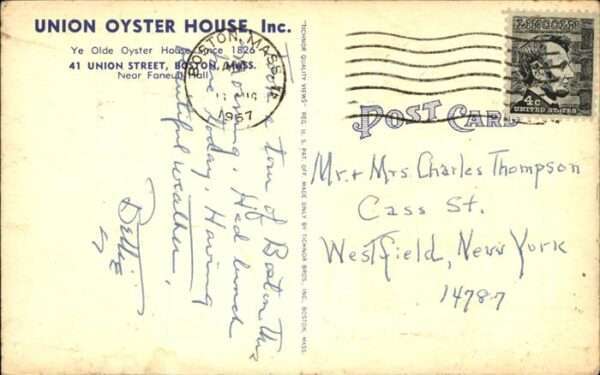 UNION OYSTER HOUSE, Inc.
Ye Olde Oyster House Since 1826
41 UNION STREET, BOSTON, MASS.
Near Faneuil Hall
a tour of Boston this
morning. Had lunch
here today. Having
beautiful weather.
"TECHNOR QUALITY VIEWS" REG. U. S. PAT. OFF. MADE ONLY BY TICHNOR BROS., INC., BOSTON, MASS.
BOSTON, MASS.
1967
LINCOLN
4c
UNITED STATES
POST CARD
Mr. + Mrs. Charles Thompson
Cass St.
Westfield, New York
14787